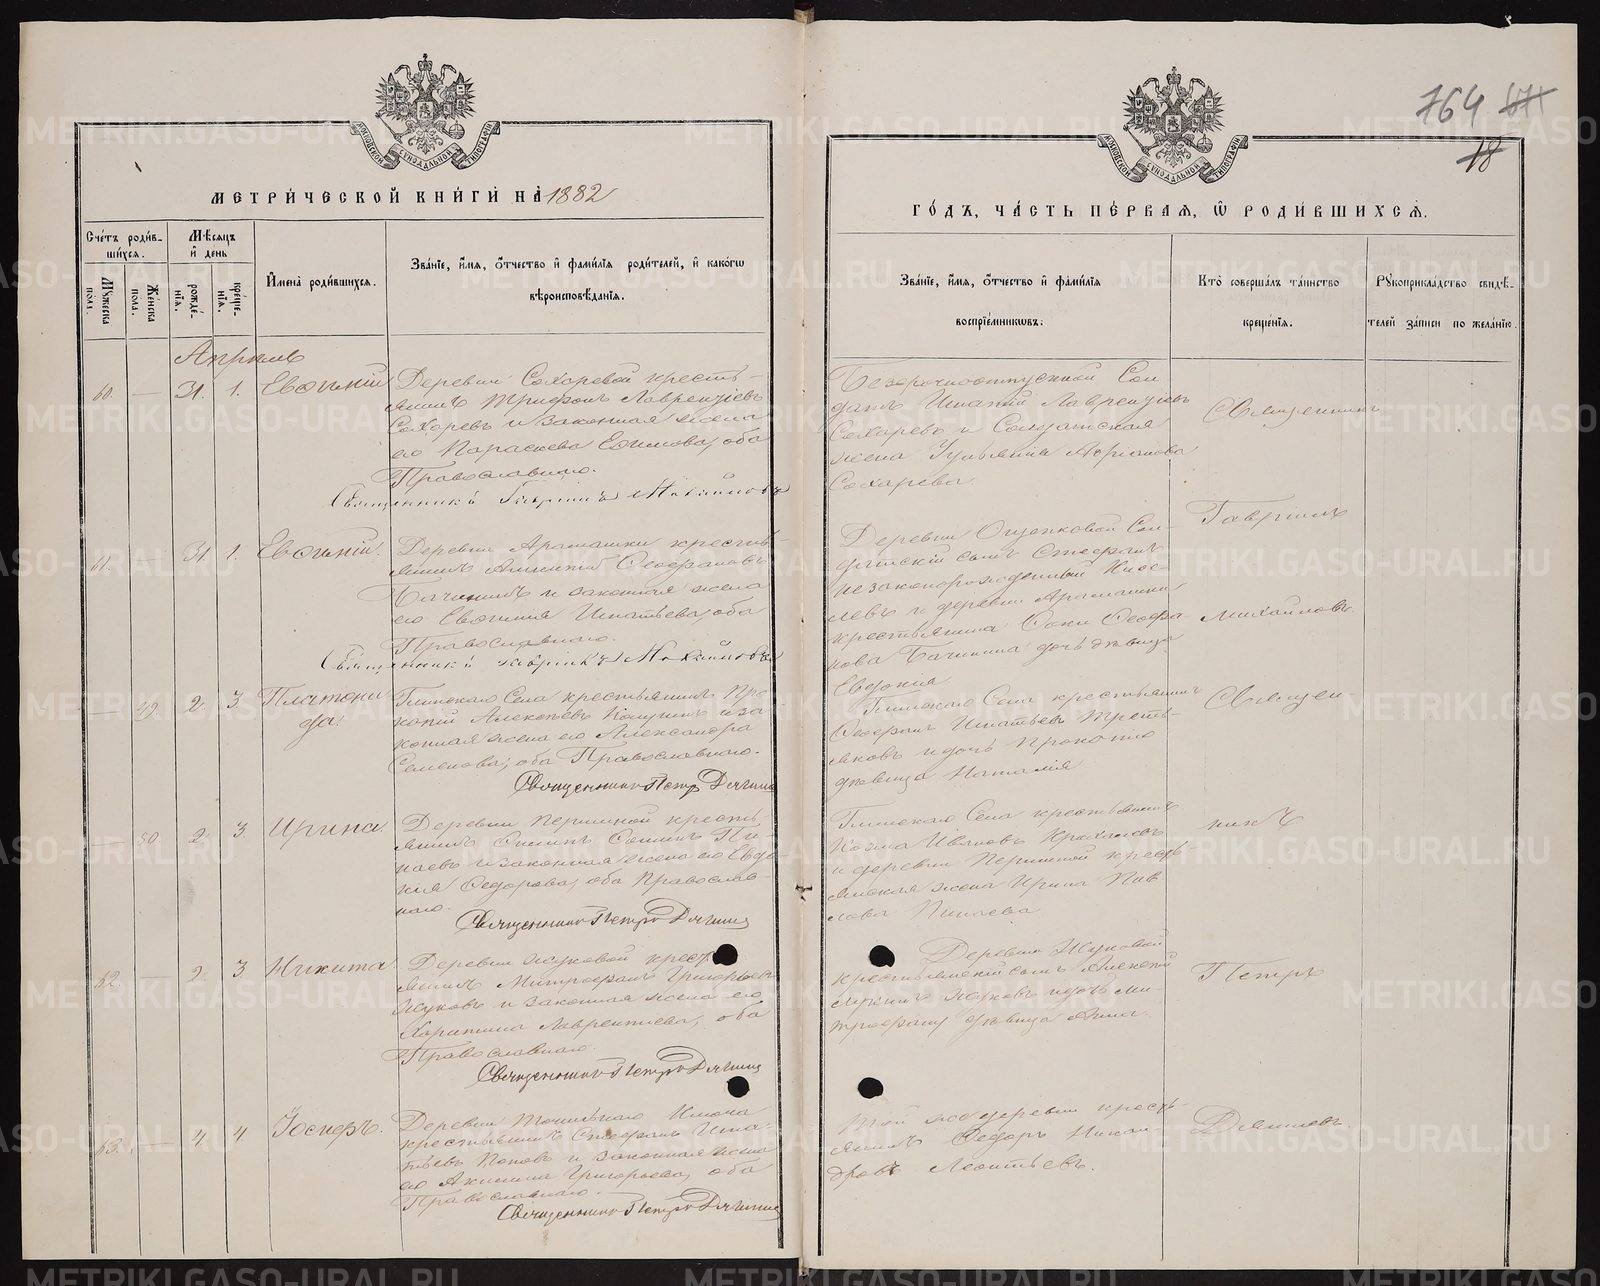 764
18
МОСКОВСКОЙ СѴНОДАЛЬНОЙ ТИПОГРАФІИ
МЕТРИ́ЧЕСКОЙ КНИ́ГИ НА̀ 1882
Сче́тъ роди́в-
ши́хся.
Мꙋ́жеска
пола.
Же́нска
пола.
Мѣ́сяцъ
и҆ де́нь
рожде́-
нїѧ.
креще́-
нїѧ.
И҆мена̀ роди́вшихсѧ.
Зва́нїе, и҆́мѧ, ѻ҆́тчество и҆ фами́лїѧ роди́телей, и҆ како́гѡ
вѣроисповѣ́данїѧ.
Апрель
60. — 31. 1. Евгеній
Деревни Сохаревой кресть-
янинъ Трифонъ Лаврентіевъ
Сохаревъ и законная жена
его Параскева Ефимова, оба
Православнаго.
Священникъ Гавріилъ Михайловъ
61. 31. 1. Евгеній.
Деревни Арамашки кресть-
янинъ
Бачининъ и законная жена
его Евгенія Игнатьева, оба
Православнаго.
Священникъ Гавріилъ Михайловъ
— 49. 2. 3. Платони-
да.
Глинскаго Села крестьянинъ Про-
копій Алексѣевъ и за-
конная жена его Александра
Семенова, оба Православнаго.
Священникъ Петръ Дягилевъ
— 50. 2. 3 Ирина.
Деревни Першиной кресть-
янинъ
наевъ и законная жена его Евдо-
кія Федорова, оба Православ-
наго.
Священникъ Петръ Дягилевъ
62. — 2. 3 Никита
Деревни Жуковой крест
янинъ Митрофанъ Григорьевъ
Жуковъ и законная жена его
Харитина Лаврентіева, оба
Православнаго.
Священникъ Петръ Дягилевъ
63. — 4. 4 Іосифъ.
Деревни Точильнаго Ключа
крестьянинъ Стефанъ Игна-
тьевъ Поповъ и законная жена
его Акилина Григорьева, оба
Православнаго.
Священникъ Петръ Дягилевъ
МОСКОВСКОЙ СѴНОДАЛЬНОЙ ТИПОГРАФІИ
ГО́ДЪ, ЧА́СТЬ ПЕ́РВАЯ, Ѽ РОДИ́ВШИХСѦ.
Зва́нїе, и҆́мѧ, ѻ҆́тчество и҆ фами́лїѧ
воспрїе́мникѡвъ.
Кто̀ соверша́лъ та́инство
креще́нїѧ.
Рꙋкоприкла́дство свидѣ́-
телей за́писи по жела́нїю.
Безсрочноотпускной Сол-
датъ Игнатій Лаврентіевъ
Сохаревъ и Солдатская
жена Ульянія
Сохарева.
Священникъ
Деревни Ощепковой Сол-
датскій сынъ Стефанъ
незаконорожденный
левъ и деревни Арамашки
крестьянина Феофа
нова Бачинина дочь дѣвица
Евдокія
Гавріилъ
Михайловъ.
Глинскаго Села крестьянинъ
Стефанъ Игнатьевъ Треть-
яковъ и дочь Прокопія
дѣвица Наталія
Священ
Глинскаго Села крестьянинъ
Козма Ивановъ
и деревни Першиной кресть-
янская жена Ирина Пав-
лова Пинаева
никъ
Деревни Жуковой
крестьянскій сынъ Алексѣй
Жуковъ и дочь Ми-
трофана дѣвица Анна.
Петръ
Той же деревни кресть-
янинъ Федоръ Никан-
дровъ Леонтьевъ.
Дягилевъ.
METRIKI.GASO-URAL.RU